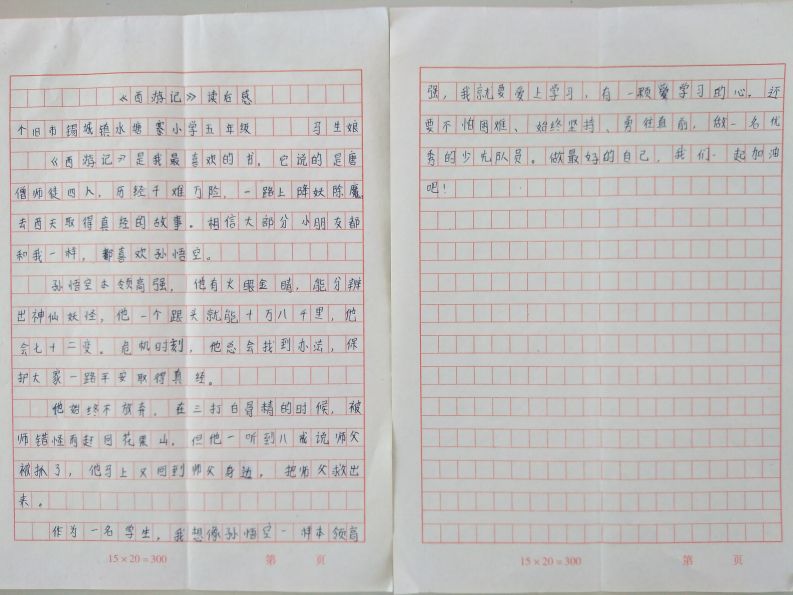 《西游记》读后感
个旧市锡城镇水塘寨小学五年级 习生娘
《西游记》是我最喜欢的书。它说的是唐
僧师徒四人，历经千难万险，一路上降妖除魔，
去西天取得真经的故事。相信大部分小朋友都
和我一样，都喜欢孙悟空。
孙悟空本领高强，他有火眼金睛，能分辨
出神仙妖怪，他一个跟头就能十万八千里，他
会七十二变。危机时刻，他总会找到办法，保
护大家一路平安取得真经。
他始终不放弃，在三打白骨精的时候，被
师错怪而赶回花果山，但他一听到八戒说师父
被抓了，他马上又回到师父身边，把师父救出
来。
作为一名学生，我想像孙悟空一样本领高
15×20=300 第 页
强，我就要爱上学习，有一颗爱学习的心。还
要不怕困难、始终坚持、勇往直前，做一名优
秀的少先队员。做最好的自己，我们一起加油
吧！
15×20=300 第 页